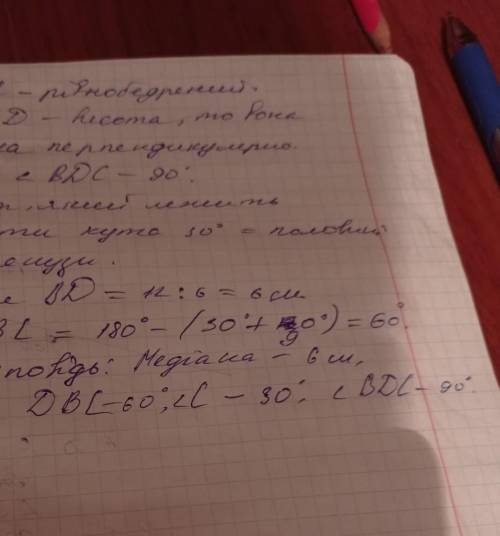 – рівнобедрений.
D – висота, то вона
на перпендикулярна.
< BDC – 90°.
, який лежить
ти кута 30° = половині
нузи.
BD = 12 : 6 = 6 см
BC = 180° – (30° + 90°) = 60°.
повідь: Медіана – 6 см,
DBC – 60°, <C – 30°, < BDC – 90°.